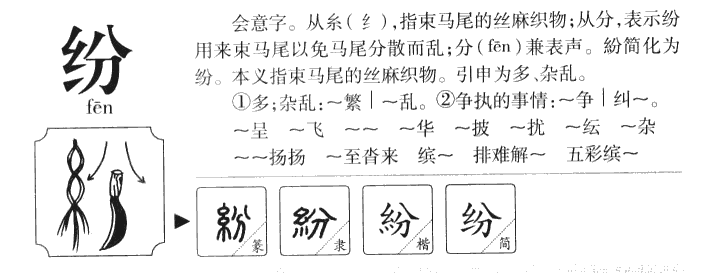 纷
fēn
会意字。从糸(纟),指束马尾的丝麻织物;从分,表示纷
用来束马尾以免马尾分散而乱;分(fēn)兼表声。紛简化为
纷。本义指束马尾的丝麻织物。引申为多、杂乱。
①多;杂乱:～繁｜～乱。②争执的事情:～争｜纠～。
～呈 ～飞 ～～ ～华 ～披 ～扰 ～纭 ～杂
～～扬扬 ～至沓来 缤～ 排难解～ 五彩缤～
紛 篆 紛 隶 紛 楷 纷 简